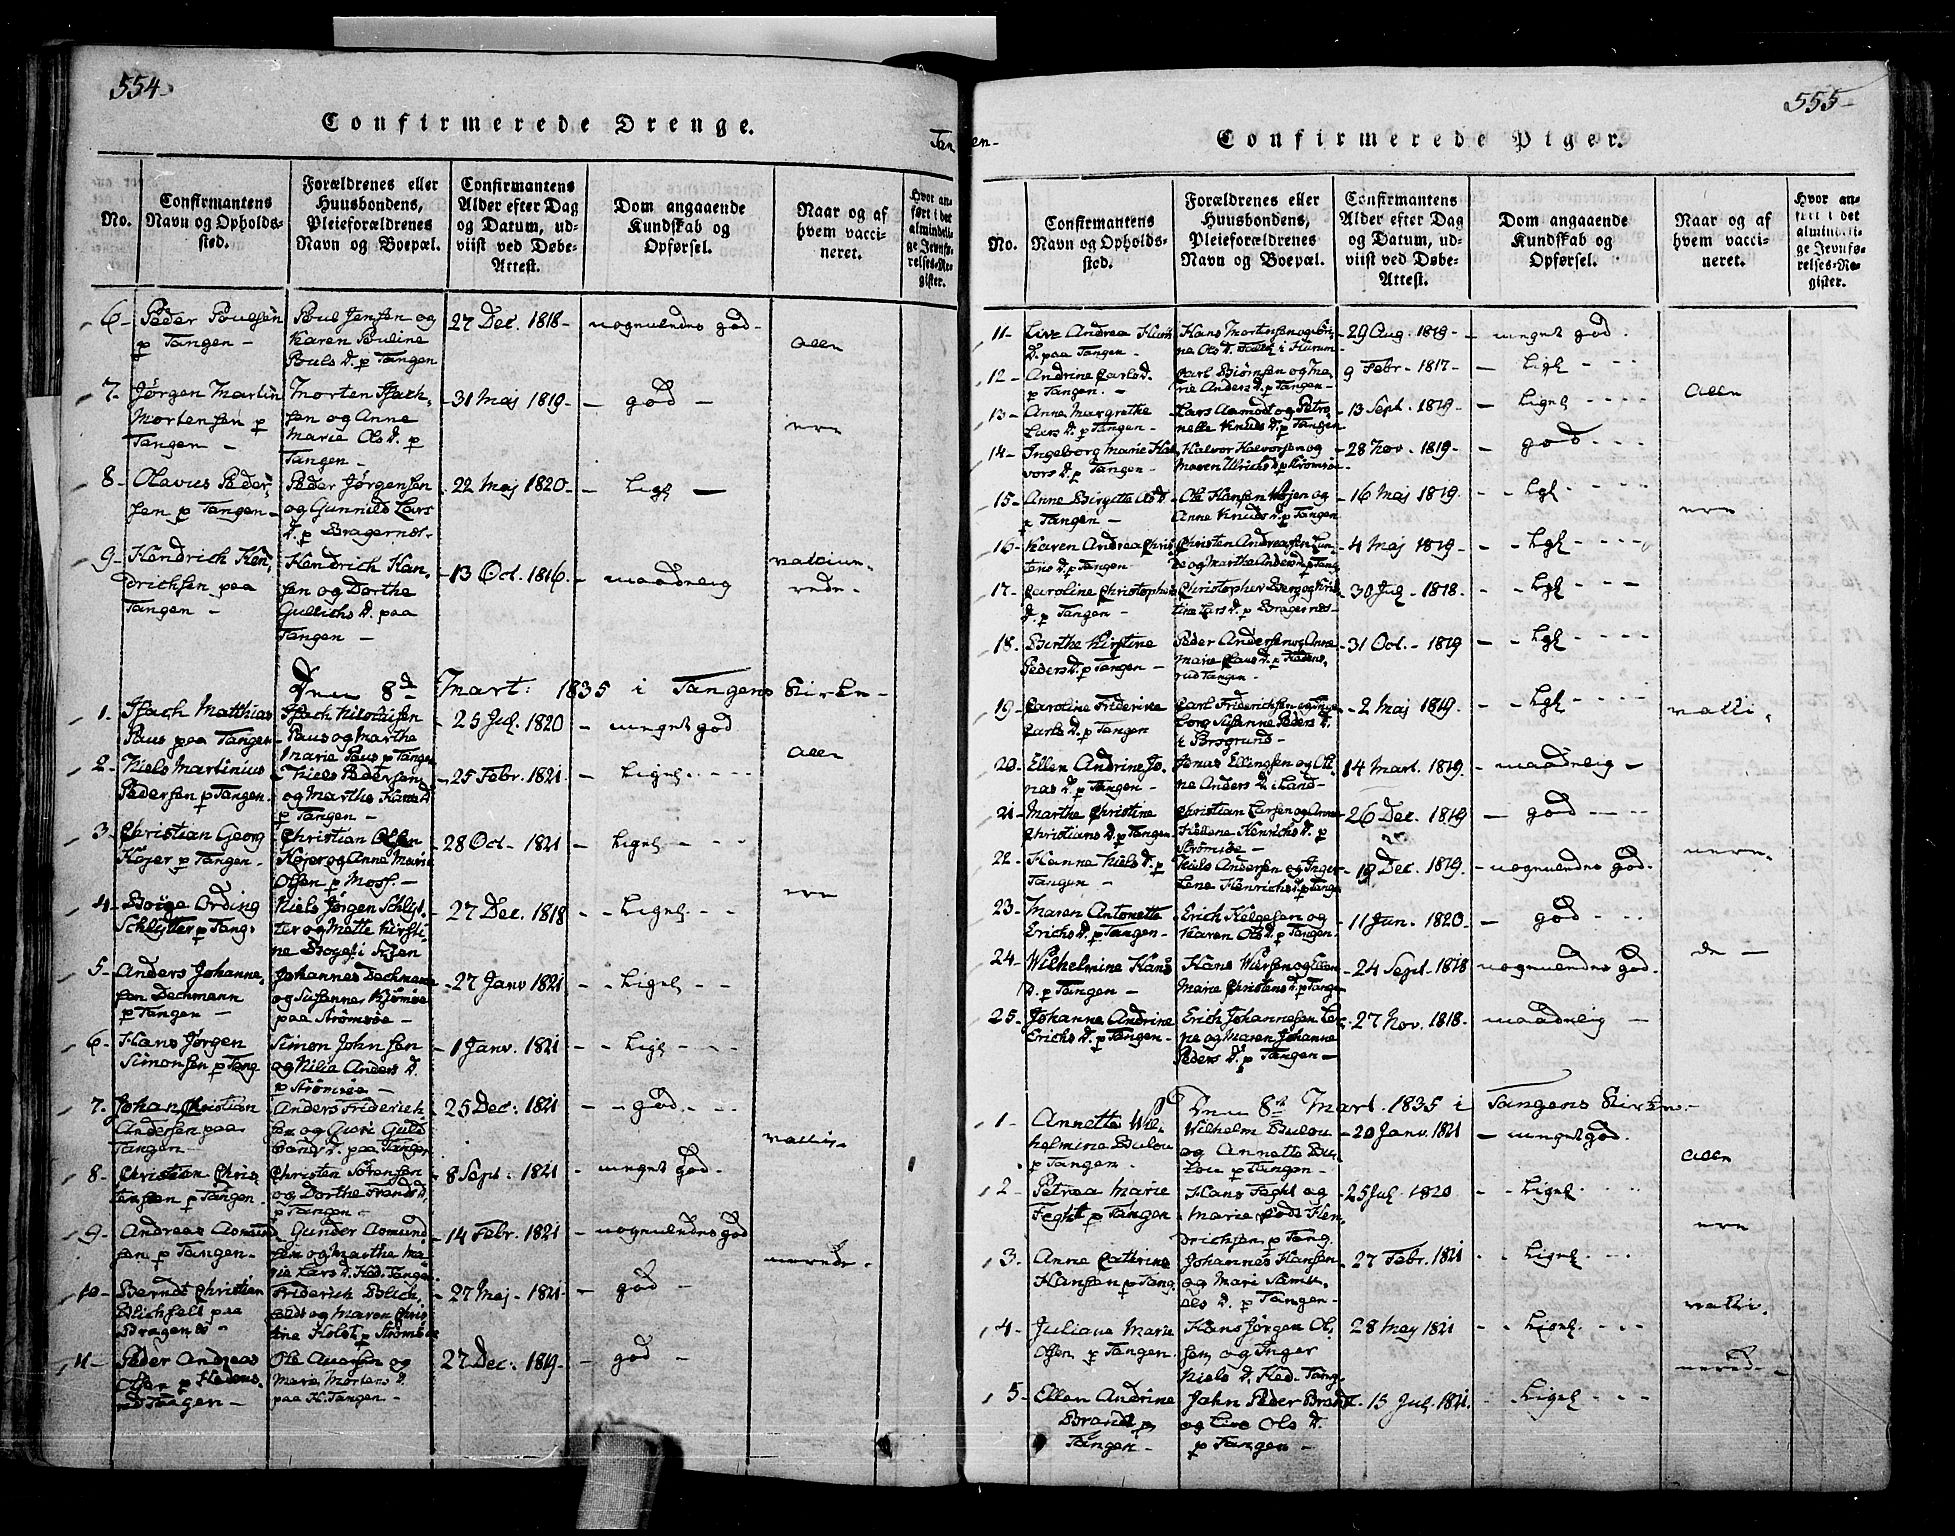 554.
Confirmerede Drenge.
No.
Confirmantens
Navn og Opholds-
sted.
Forældrenes eller
Huusbondens,
Pleieforældrenes
Navn og Boepæl.
Confirmantens
Alder efter Dag
og Datum, ud-
viist ved Døbe-
Attest.
Dom angaaende
Kundskab og
Opførsel.
Naar og af
hvem vacci-
neret.
Hvor an-
ført i det
almindeli-
ge Jevnfø-
relses-Re-
gister.
6- Peder Poulsen
p Tangen -
Poul Jensen og
Karen Pouline
Pouls D. p Tangen
27 Dec. 1818-
nogenledes god-
Alle
7- Jørgen Martin
Mortensen p
Tangen -
Morten Isach-
sen og Anne
Marie Ols D. p
Tangen -
31 Maj 1819-
- god -
ere
8- Olavus Peder-
sen p Tangen-
Peder Jørgensen
og Gunnild Lars
D. p Bragernes.
22 Maj 1820-
- Ligl -
9- Hendrich Hen-
drichsen paa
Tangen -
Hendrich Han-
sen og Dorthe
Gullichs D. paa
Tangen -
13 Oct. 1816-
maadelig
vaccine-
rede-
Den 8de Mart: 1835 i Tangens Kirke-
1. Isach Matthias
Paus paa Tangen-
Isach Nicolaisen
Paus og Marthe
Marie Paus p Tangen
25 Jul. 1820
- meget god
Alle
2- Niels Martinius
Pedersen p Tangen-
Niels Pedersen
og Marthe Hans D
p Tangen -
25 Febr. 1821-
- Ligel. - - -
3- Christian Georg
Køjer p Tangen-
Christian Olsen
Køjer og Anne Marie
Olsen p Moss. -
28 Oct- 1821
- Ligel - - -
ere
4- Boige Ording
Schlytter p Tang-
Niels Jørgen Schlyt-
ter og Mette Kirsti-
ne Boges i Skien
27 Dec. 1818
- - Ligel - -
5- Anders Johanne-
sen Dechmann
p Tangen -
Johannes Dechmann
og Susanne Biørnsøe
paa Strømsøe -
27 Janv 1821
- - Ligel - -
6- Hans Jørgen
Simonsen p Tang
Simon Johnsen
og Nilia Anders D.
p Strømsøe -
1 Janv. 1821
- - Ligl - - -
7. Johan Christian
Andersen paa
Tangen -
Anders Friderich-
sen og Guri Guld-
brands D. paa Tangen
25 Dec: 1821
- - god. - -
vacci-
8- Christian Chris-
tensen p Tangen-
Christen Sørensen
og Dorthe Frands D.
p Tangen -
8 Sept: 1821
- meget god-
9- Andreas Asmund-
sen p Tangen-
Gunder Asmund-
sen og Marthe Ma-
rie Lars D. Hed. Tangen
14 Febr. 1821
- nogenledes god
nerede.
10- Berndt Christian
Blichfelt paa
Bragernes -
Friderich Blich-
feldt og Maren Chris-
tine Holst p Strømsøe
27 Maj - 1821-
- god -
11- Peder Andreas
Olsen p Hedens-
rud Tangen -
Ole Auensen og
Marie Mortens D.
paa H. Tangen -
27 Dec: 1819-
- god -
555-
Confirmerede Piger.
No.
Confirmantens
Navn og Opholds-
sted.
Forældrenes eller
Huusbondens,
Pleieforældrenes
Navn og Boepæl.
Confirmantens
Alder efter Dag
og Datum, ud-
viist ved Døbe-
Attest.
Dom angaaende
Kundskab og
Opførsel.
Naar og af
hvem vacci-
neret.
Hvor an-
ført i det
almindeli-
ge Jevnfø-
relses-Re-
gister.
11- Live Andrea Hans
D. paa Tangen -
Hans Mortensen og
Ols D. i Hurum
29 Aug. 1819
- meget god.
12- Andrine Carls D.
p Tangen. -
Carl Biørnsen og Ma-
rie Anders D. p Tangen-
9 Febr- 1817-
- Ligl - - -
Alle
13- Anne Margrethe
Lars D. p Tangen-
Lars Aamodt og Petro-
nelle Knuds D. p Tangen
13 Sept. 1819-
- Ligel - - - -
14- Ingeborg Marie Hal-
vors D. p Tangen-
Halvor Halvorsen og
Maren Ulrichs D. p Strømsøe
28 Nov. 1819-
- god - - -
15- Anne Birgitte Ols D.
p Tangen -
Ole Hansen Høyen og
Anne Knuds D. p Tangen
16 Maj 1819.
- - Lgl - - - -
ere
16- Karen Andrea Chris-
tens D. p Tangen
Christen Andreasen Lun-
de og Marthe Anders D. p Tang.
4 Maj 1819-
- - Lgl - - - -
17- Caroline Christophers
D. p Tangen -
Christopher Berg og Kris-
tine Lars D. p Bragernes-
30 Jul. 1818-
- - Lgl - - -
18- Birthe Kirstine
Peders D. p Tangen -
Peder Andersen og Anne
Marie Claus D. p Hedens-
rud Tangen
31 Oct.- 1819
- - Lgl - - - -
19- Caroline Friderike
Carls D. p Tangen
Carl Friderichsen og Inge-
borg Susanne Peders D.
i Brsgrund-
2 Maj 1819.
- - Lgl - - - -
vacci-
20- Ellen Andrine Jo-
nas D. p Tangen -
Jonas Ellingsen og Oli-
ne Anders D. i Land-
14 Mart. 1819.
- maadelig -
21- Marthe Christine
Christians D. p Tangen-
Christian Larsen og Anne
Hellene Henrichs D. p
Strømsøe -
26 Dec. 1819
- god - - -
22- Hanne Niels D. p
Tangen -
Niels Andersen og Inger
Lene Henrichs D. p Tangen
19 Dec. 1819.
- nogenledes god.
nere-
23- Maren Antonette
Erichs D. p Tangen-
Erich Helgesen og
Karen Ols D. p Tangen.
11 Jun. 1820-
- god - - -
24- Wilhelmine Hans
D. p Tangen -
Hans Wersen og
Marie Christens D. p Tangen
24 Sept. 1818
nogenledes god-
de -
25- Johanne Andrine
Erichs D. p Tangen-
Erich Johannesen
og Maren Johanne
Peders D. p Tangen -
27 Nov. 1818-
maadelig -
Den 8de Mart. 1835 i Tangens Kirke-
1- Annette Wil-
helmine Bulou
p Tangen-
Wilhelm Bulou
og Annette Bu-
lou p Tangen -
20 Janv. 1821
- meget god.
Alle
2- Petrea Marie
Feght p Tangen
Hans Feght og
Marie født Hen-
drichsen p Tang.
25 Jul. 1820
- - Ligel - - -
ere
3- Anne Cathrine
Hansen p Tang.
Johannes Hansen
og Mari
D. p Tangen-
27 Febr. 1821
- - Ligel - - -
vacci-
4- Juliane Marie
Olsen p Tangen.
Hans Jørgen Ol-
sen og Inger
Niels D. Hed- Tang.
28 May 1821
- - Ligel - - -
nerede-
5- Ellen Andrine
Brandt p
Tangen -
Jahn Peder Brandt
og Live Ols D.
p Tangen -
15 Jul. 1821.
- Ligel - - -